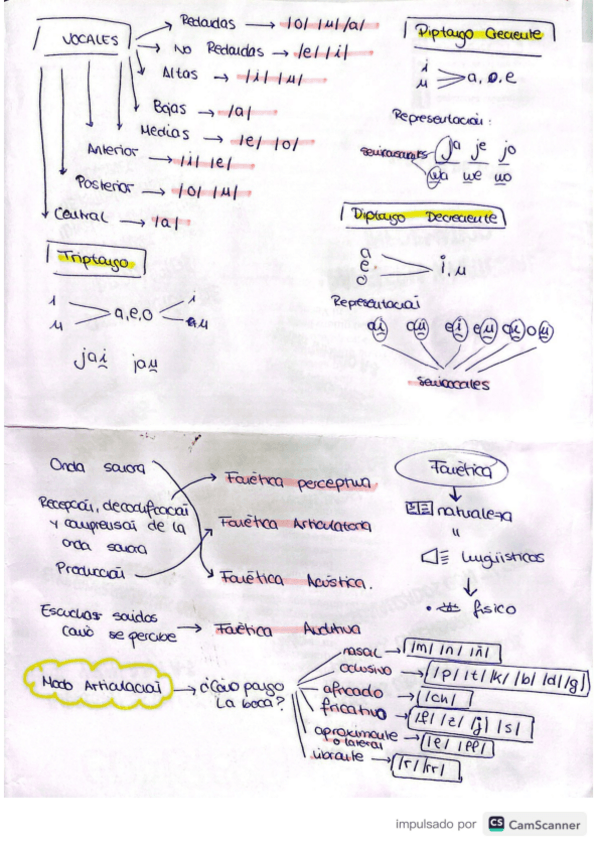 VOCALES
Redondas → /o/ /u/ /a/
No Redondas → /e/ /i/
Altas → /i/ /u/
Bajas → /a/
Medias → /e/ /o/
Anterior → /i/ /e/
Posterior → /o/ /u/
Central → /a/
Triptongo
i
u
a, e, o
i
u
jai̯ jau̯
Diptongo Creciente
i
u
a, o, e
Representación:
semiconsonantes
ja je jo
wa we wo
Diptongo Decreciente
a
e
o
i, u
Representación
ai̯ au̯ ei̯ eu̯ ou̯
semivocales
Onda sonora
Recepción, decodificación
y comprensión de la
onda sonora
Producción
Escuchas sonidos
como se percibe
Fonética perceptiva
Fonética Articulatoria
Fonética Acústica.
Fonética Auditiva
Fonética
naturaleza
"
lingüísticos
físico
Modo Articulación → ¿Cómo pongo
la boca?
nasal → /m/ /n/ /ñ/
oclusivo → /p/ /t/ /k/ /b/ /d/ /g/
africado → /ch/
fricativo → /f/ /z/ /j/ /s/
aproximante
o lateral → /l/ /ll/
vibrante → /r/ /rr/
impulsado por CS CamScanner